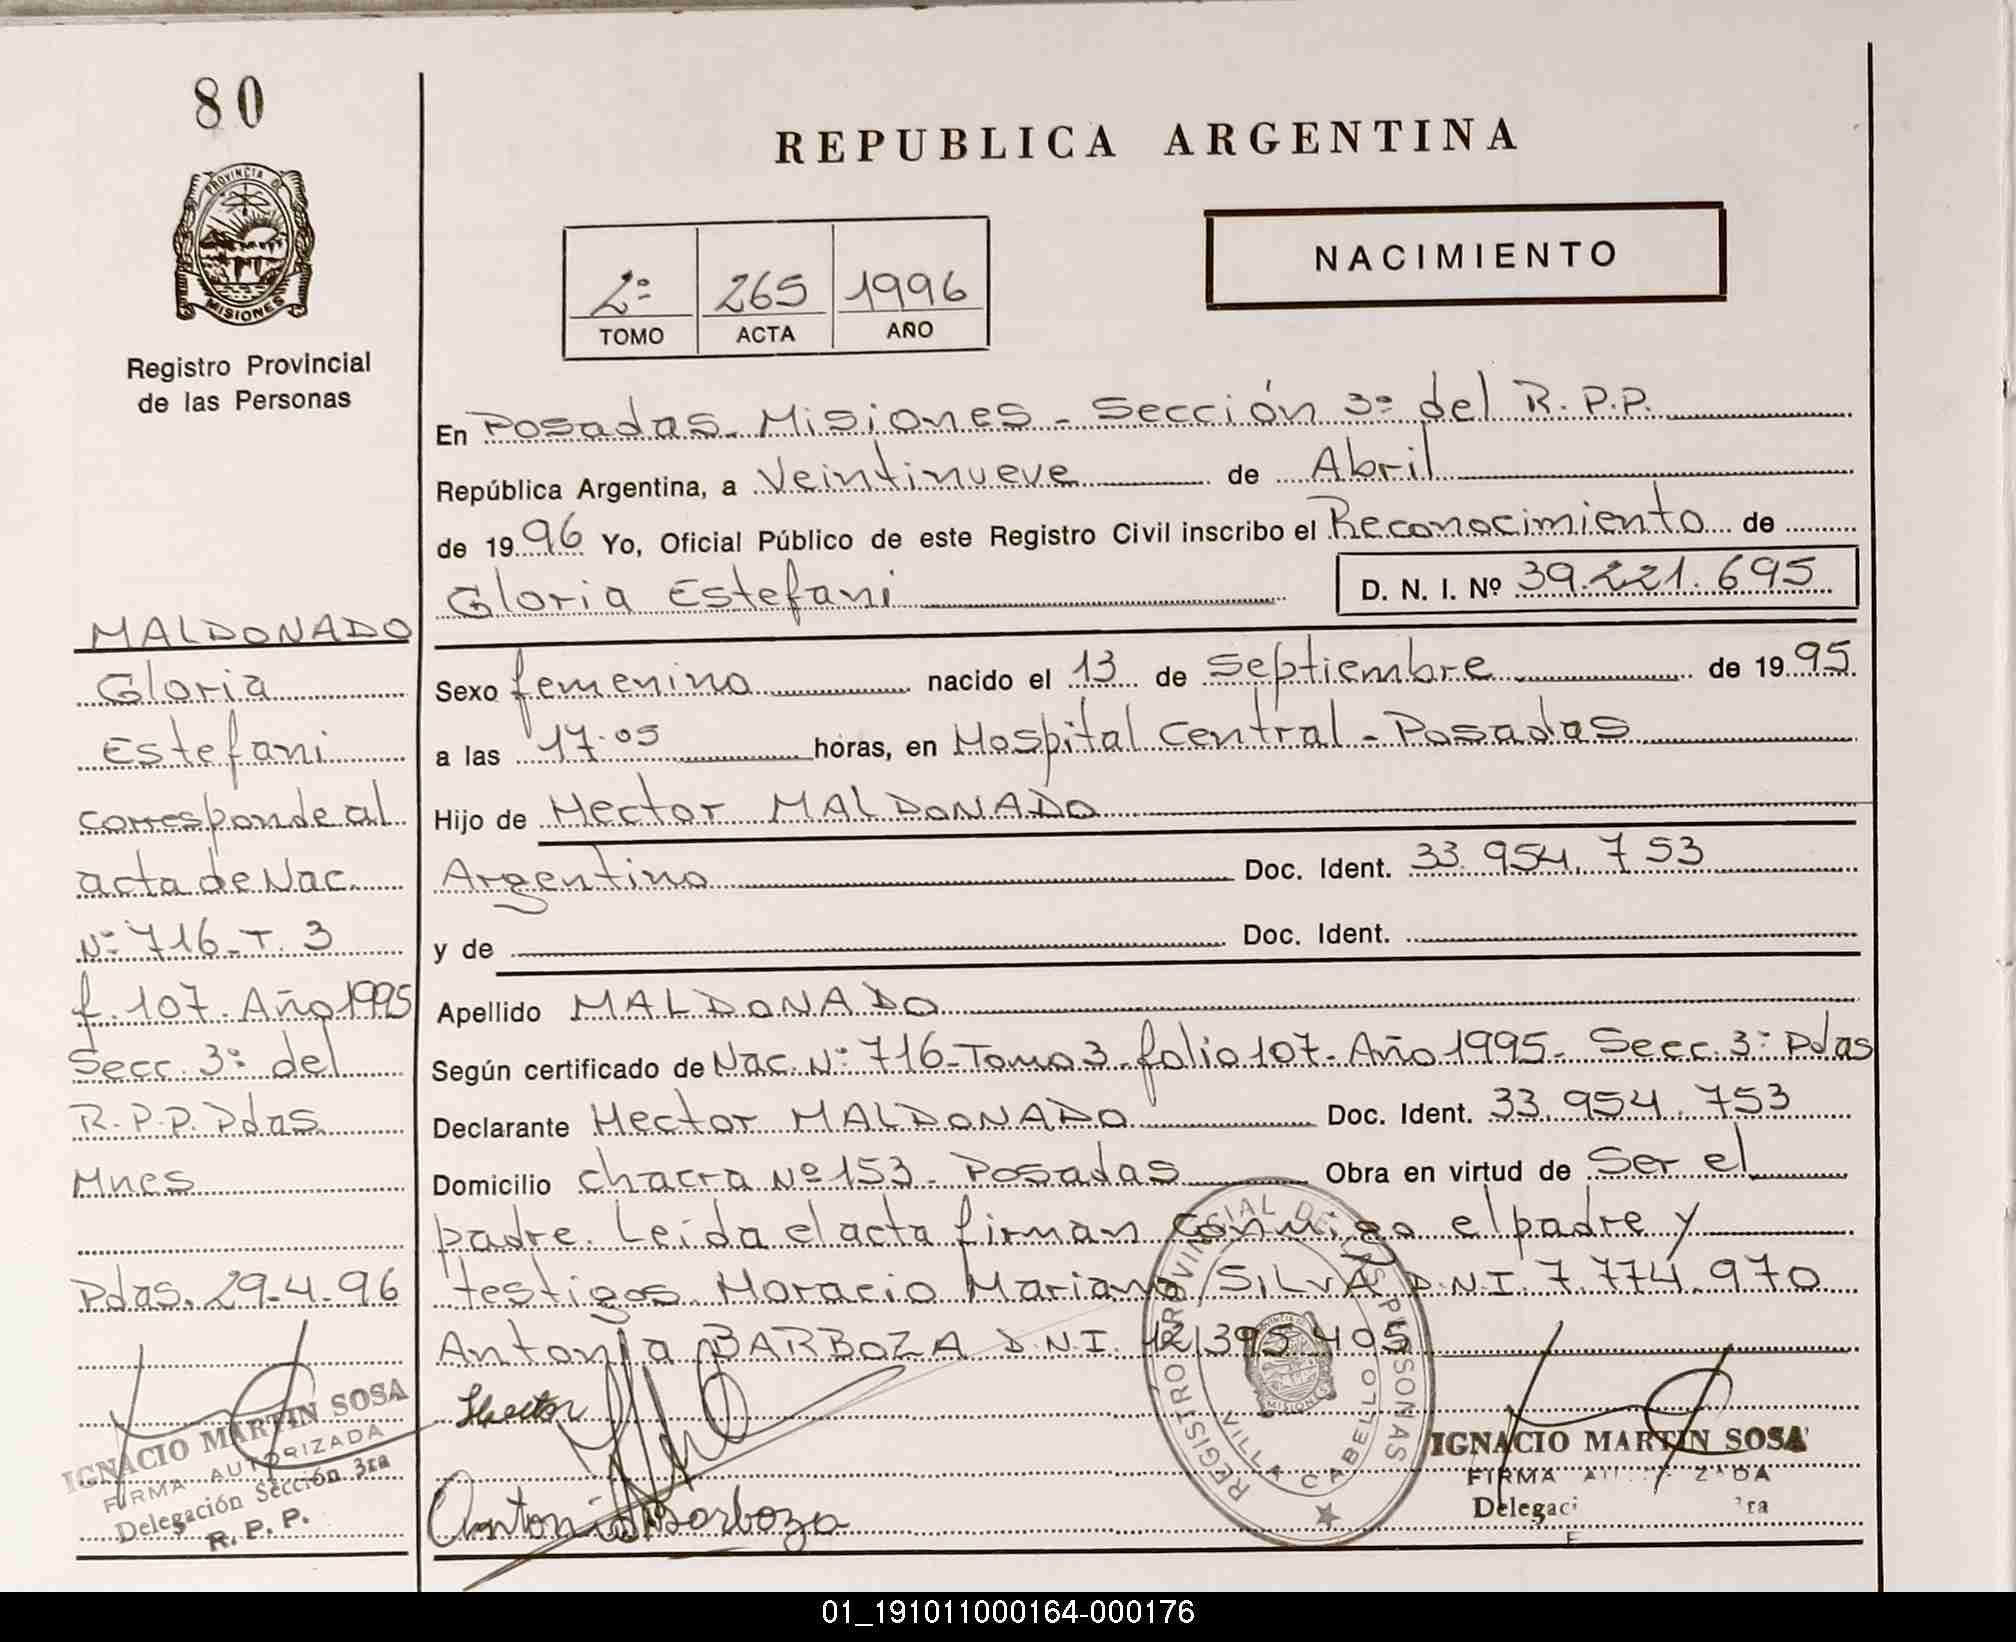 80
REPUBLICA ARGENTINA
PROVINCIA DE
MISIONES
Registro Provincial
de las Personas
2º 265 1996
TOMO ACTA AÑO
NACIMIENTO
En Posadas - Misiones - Sección 3º del R.P.P.
República Argentina, a Veintinueve de Abril
de 1996 Yo, Oficial Público de este Registro Civil inscribo el Reconocimiento de
Gloria Estefani D. N. I. Nº 39.221.695
Sexo femenino nacido el 13 de Septiembre de 1995
a las 17.05 horas, en Hospital Central - Posadas
Hijo de Hector MALDONADO
Argentino Doc. Ident. 33.954.753
y de Doc. Ident.
Apellido MALDONADO
Según certificado de Nac. Nº 716 - Tomo 3 - folio 107 - Año 1995 - Secc. 3º Pdas
Declarante Hector MALDONADO Doc. Ident. 33.954.753
Domicilio chacra Nº 153 - Posadas Obra en virtud de Ser el
padre. Leida el acta firman conmigo el padre y
testigos Horacio Mariano SILVA D.N.I. 7.774.970
Antonia BARBOZA D.N.I. 12.395.405
Hector
Antonia Barboza
REGISTRO PROVINCIAL DE LAS PERSONAS
VILLA CABELLO
MISIONES
IGNACIO MARTIN SOSA
FIRMA
Delegaci 3ra
MALDONADO
Gloria
Estefani
corresponde al
acta de Nac.
Nº 716 - T. 3
f. 107 - Año 1995
Secc. 3º del
R.P.P. Pdas
Mnes
Pdas. 29-4-96
IGNACIO MARTIN SOSA
FIRMA AUTORIZADA
Delegación Sección 3ra
R. P. P.
01_191011000164-000176